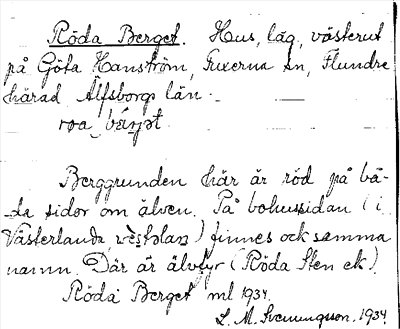 Röda Berget. Hus, låg, västerut
på Göta Hanström, Fuxerna sn, Flundre
härad Älfsborgs län.
roa
Berggrunden här är röd på bå-
da sidor om älven. På bohussidan (i
Västerlanda) finnes också samma
namn. Där är älvfyr (Röda Sten etc).
Röda Berget ml 1934.
L. M. Svenungsson. 1934.